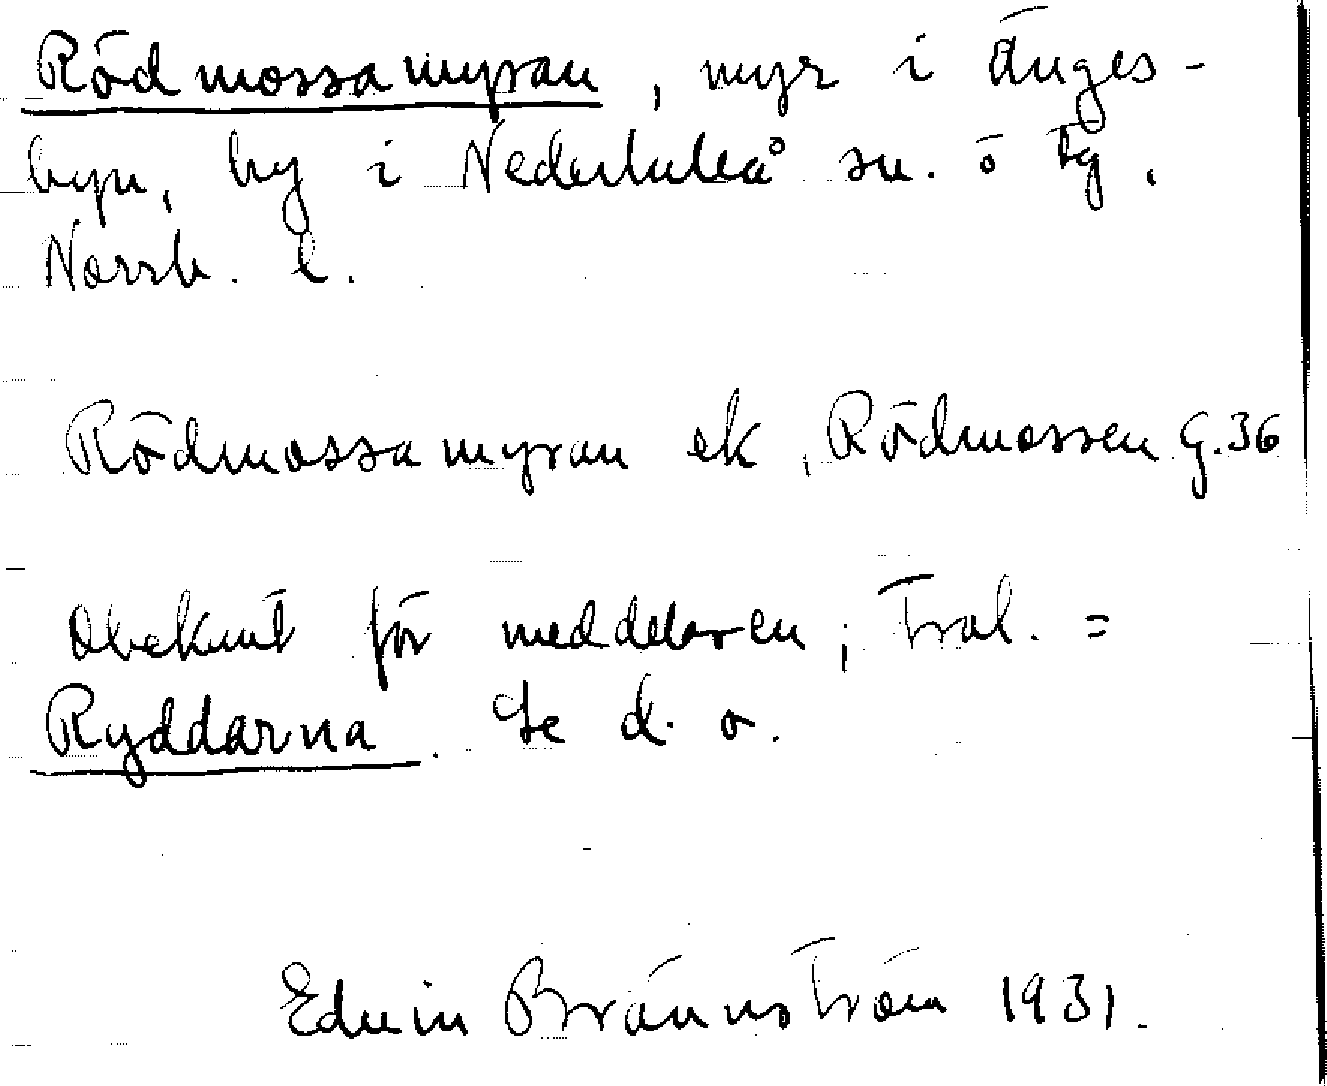 Rödmossamyran, myr i Änges-
byn, by i Nederluleå sn. o tg.
Norrb. l.
Rödmossamyran ek, Rödmossen G.36
Obekant för meddelaren; trol. =
Ryddarna. Se d. o.
Edvin Brännström 1931.